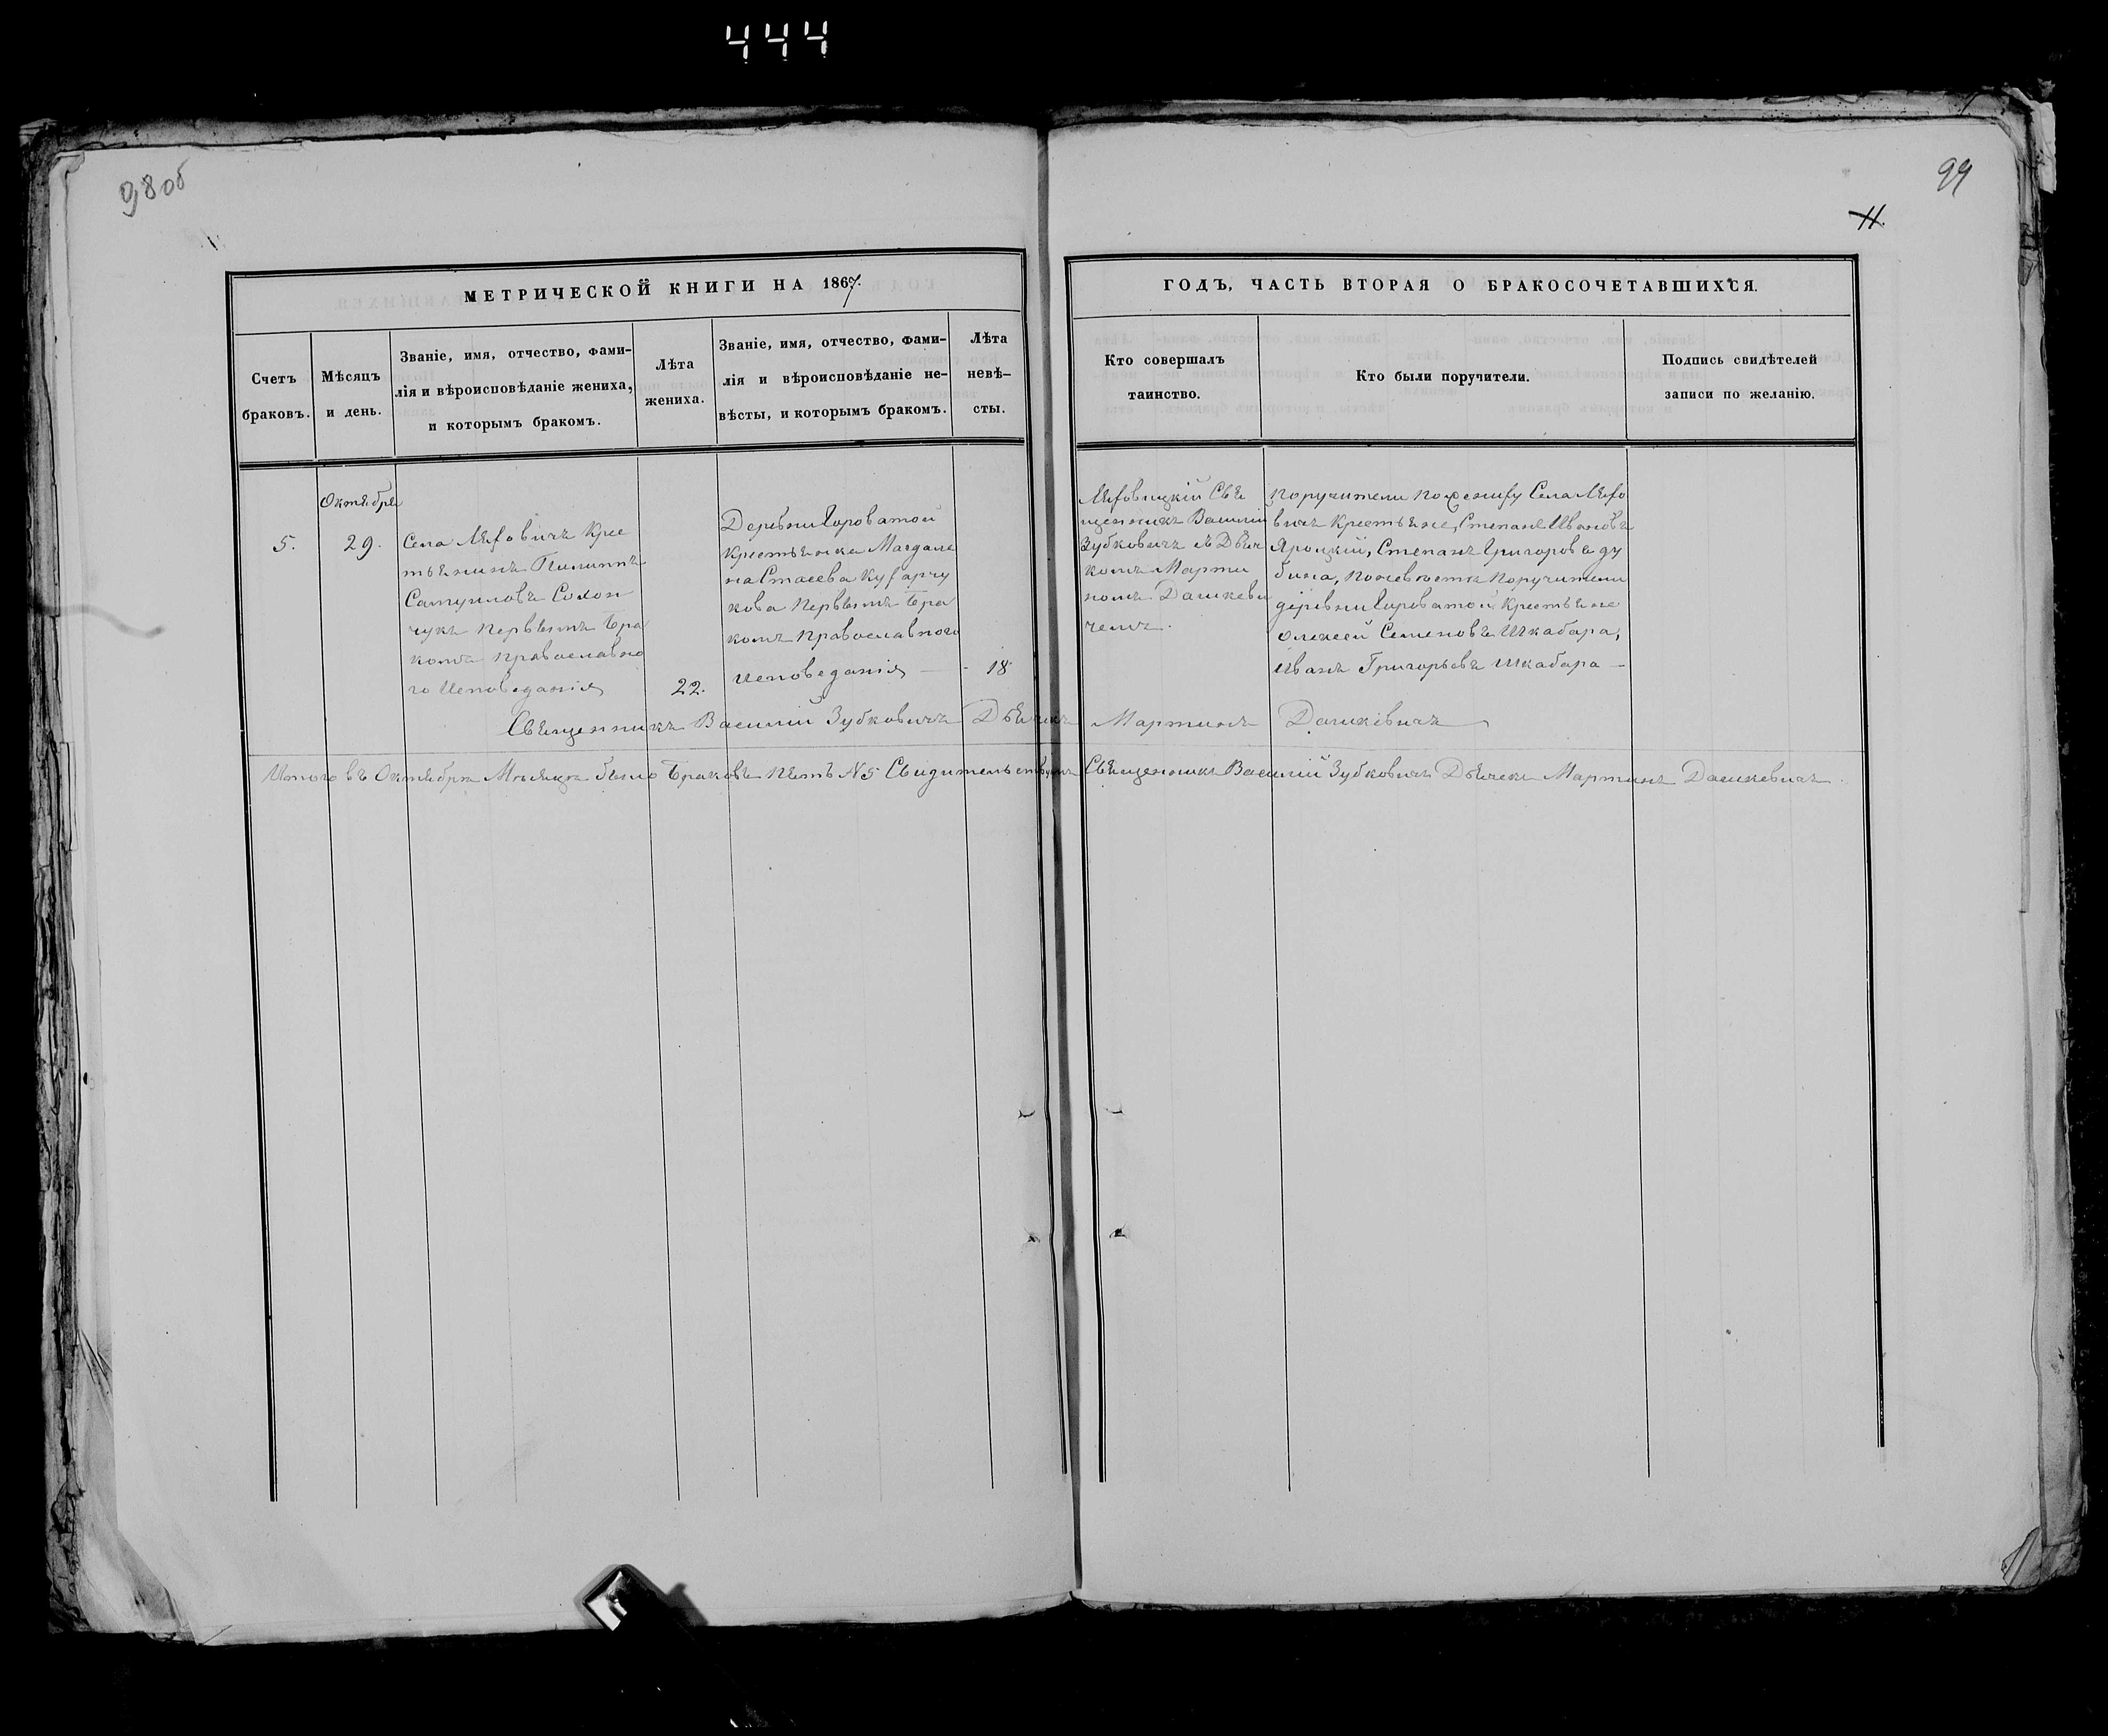 444
98 об
99
11.
МЕТРИЧЕСКОЙ КНИГИ НА 1867.
ГОДЪ, ЧАСТЬ ВТОРАЯ О БРАКОСОЧЕТАВШИХСЯ.
Счетъ
браковъ.
Мѣсяцъ
и день.
Званіе, имя, отчество, фами-
лія и вѣроисповѣданіе жениха,
и которымъ бракомъ.
Лѣта
жениха.
Званіе, имя, отчество, фами-
лія и вѣроисповѣданіе не-
вѣсты, и которымъ бракомъ.
Лѣта
невѣ-
сты.
Кто совершалъ
таинство.
Кто были поручители.
Подпись свидѣтелей
записи по желанію.
5.
Октября
29.
Села Ляховичъ Крес
тьянинъ Пилипъ
Самуиловъ Солон
чукъ Первымъ Бра
комъ Православно
го Исповеданія
22.
Деревни Гороватой
Крестьянка Магдале
на Стасева Кухарчу
кова Первымъ Бра
комъ Православного
Исповеданія
18
Ляховицкій Свя
щенникъ Василій
Зубковичъ съ Дьяч
комъ Марти
номъ Дашкеви
чемъ.
Поручители По жениху Села Ляхо
вичъ Крестьяне, Степанъ Ивановъ
Яроцкій, Степанъ Григоровъ Ду
бина, По невюсте Поручители
деревни Гороватой Крестьяне
Олексей Семеновъ Шкабара,
Иванъ Григорьевъ Шкабара
Священникъ Василій Зубковичъ Дьячекъ Мартинъ Дашкевичъ
Итого въ Октябре Месяце было Браковъ Пять №5 Свидительствуемъ Священникъ Василій Зубковичъ Дьячекъ Мартинъ Дашкевичъ